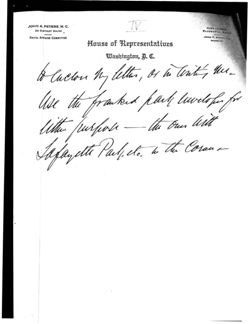 JOHN A. PETERS, M.C.
IV
House of Representatives
Washington, D.C.
to enclose my letter, or in writing me.
Use the franked park envelopes for
either purpose — the ones with
Lafayette Park, etc. in the corner —